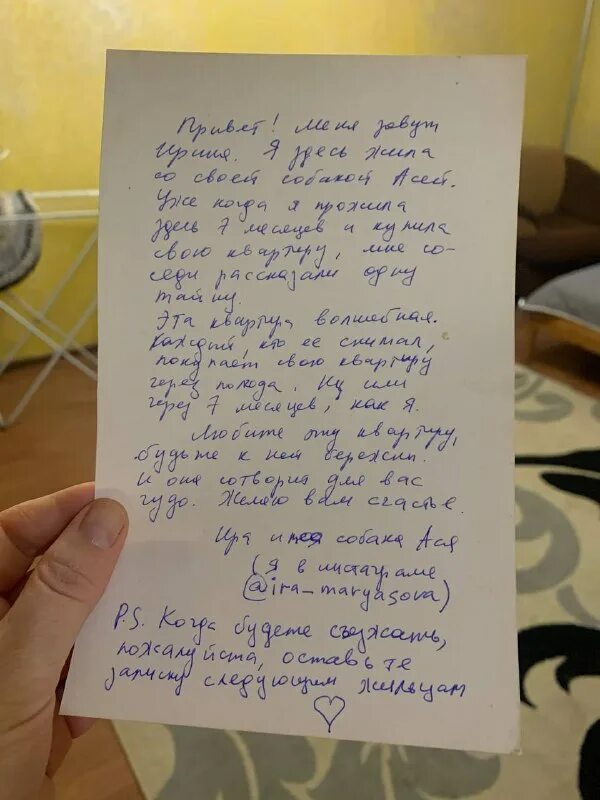 Привет! Меня зовут
Ирина. Я здесь жила
со своей собакой Асей.
Уже когда я прожила
здесь 7 месяцев и купила
свою квартиру, мне со-
седи рассказали одну
тайну.
Эта квартира волшебная.
Каждый, кто её снимал,
покупает свою квартиру
через полгода. Ну или
через 7 месяцев, как я.
Любите эту квартиру,
будьте к ней бережны.
И она сотворит для вас
чудо. Желаю вам счастье.
Ира и собака Ася
(Я в инстаграме
@ira_maryasova)
P.S. Когда будете съезжать,
пожалуйста, оставьте
записку следующим жильцам